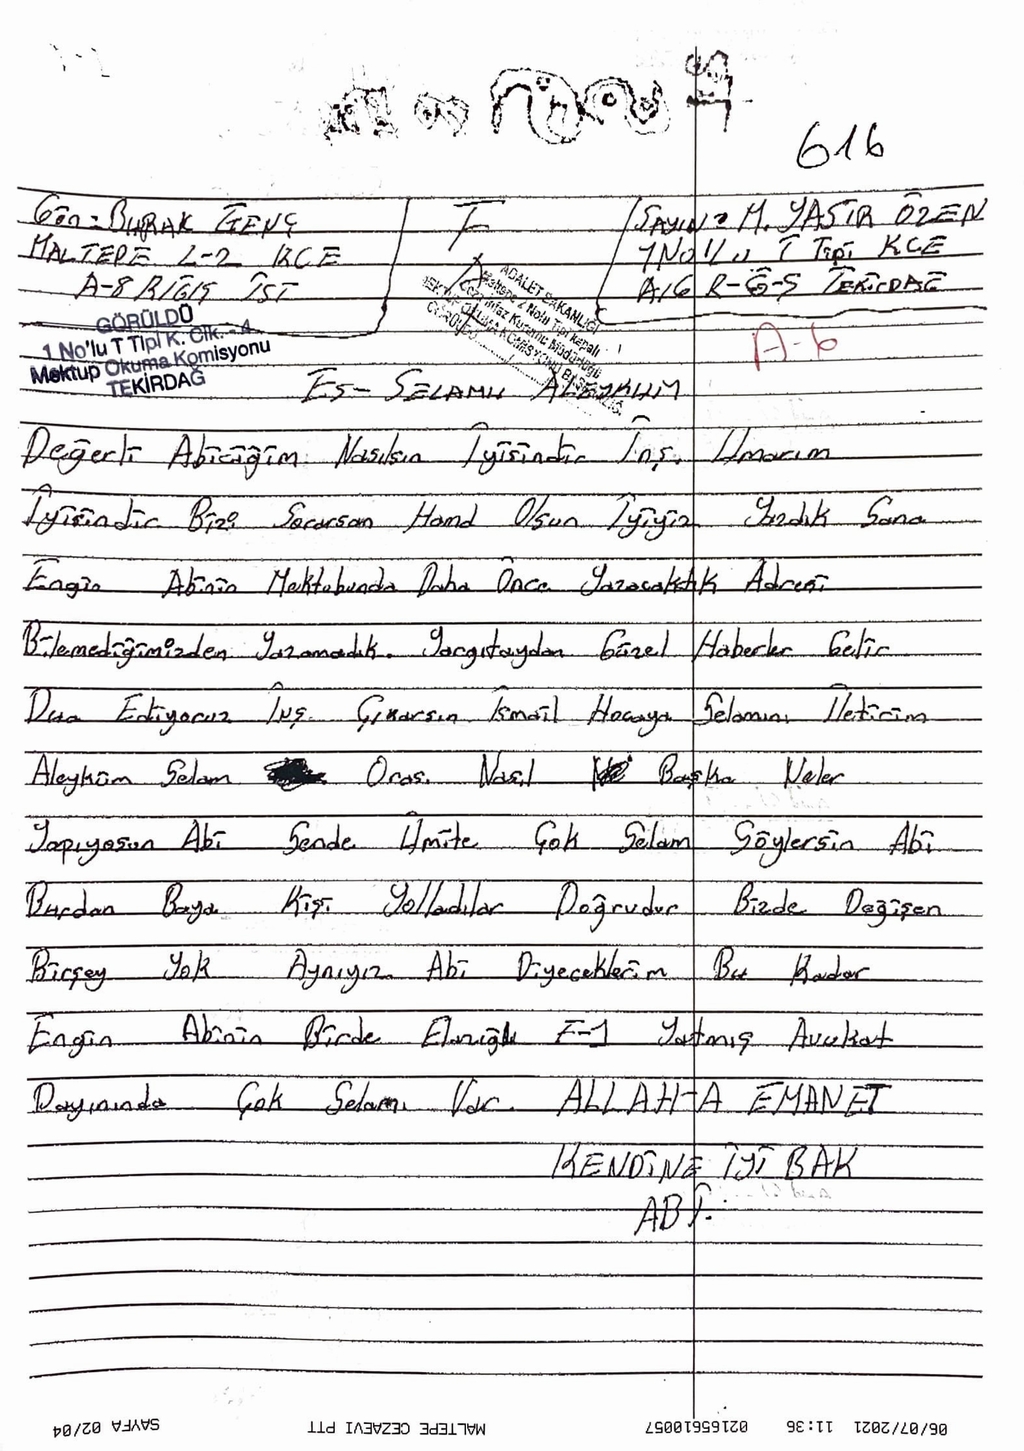 616
Gön = BURAK GENÇ
MALTEPE L-2 KCE
A-8 İST
F
SAYIN = M. YASİR ÖZEN
1 No'lu T Tipi KCE
A16 R-6-5 TEKİRDAĞ
GÖRÜLDÜ
1 No'lu T Tipi K. Cik. - 4
Mektup Okuma Komisyonu
TEKİRDAĞ
ADALET BAKANLIĞI
Maltepe 2 Nolu Tipi Kapalı
Ceza İnfaz Kurumu Müdürlüğü
MEKTUP OKUMA KOMİSYONU BAŞKANLIĞI
A-6
ES-SELAMU ALEYKUM
Değerli Abiciğim Nasılsın İyisindir İnş. Umarım
İyisindir Bizi Sorarsan Hamd Olsun İyiyiz Yazdık Sana
Engin Abinin Mektubunda Daha Önce Yazacaktık Adresi
Bilemediğimizden Yazamadık. Yargıtaydan Güzel Haberler Gelir
Dua Ediyoruz İnş. Çıkarsın İsmail Hocaya Selamını İletirim
Aleyküm Selam Orası Nasıl Başka Neler
Yapıyosun Abi Sende Ümite Çok Selam Söylersin Abi
Burdan Baya Kişi Yolladılar Doğrudur Bizde Değişen
Birşey Yok Aynıyız Abi Diyeceklerim Bu Kadar
Engin Abinin Birde F-1 Yatmış Avukat
Dayınında Çok Selamı Var. ALLAH-A EMANET
KENDİNE İYİ BAK
ABİ.
06/07/2021 11:36 021655610057 MALTEPE CEZAEVI PTT SAYFA 02/04